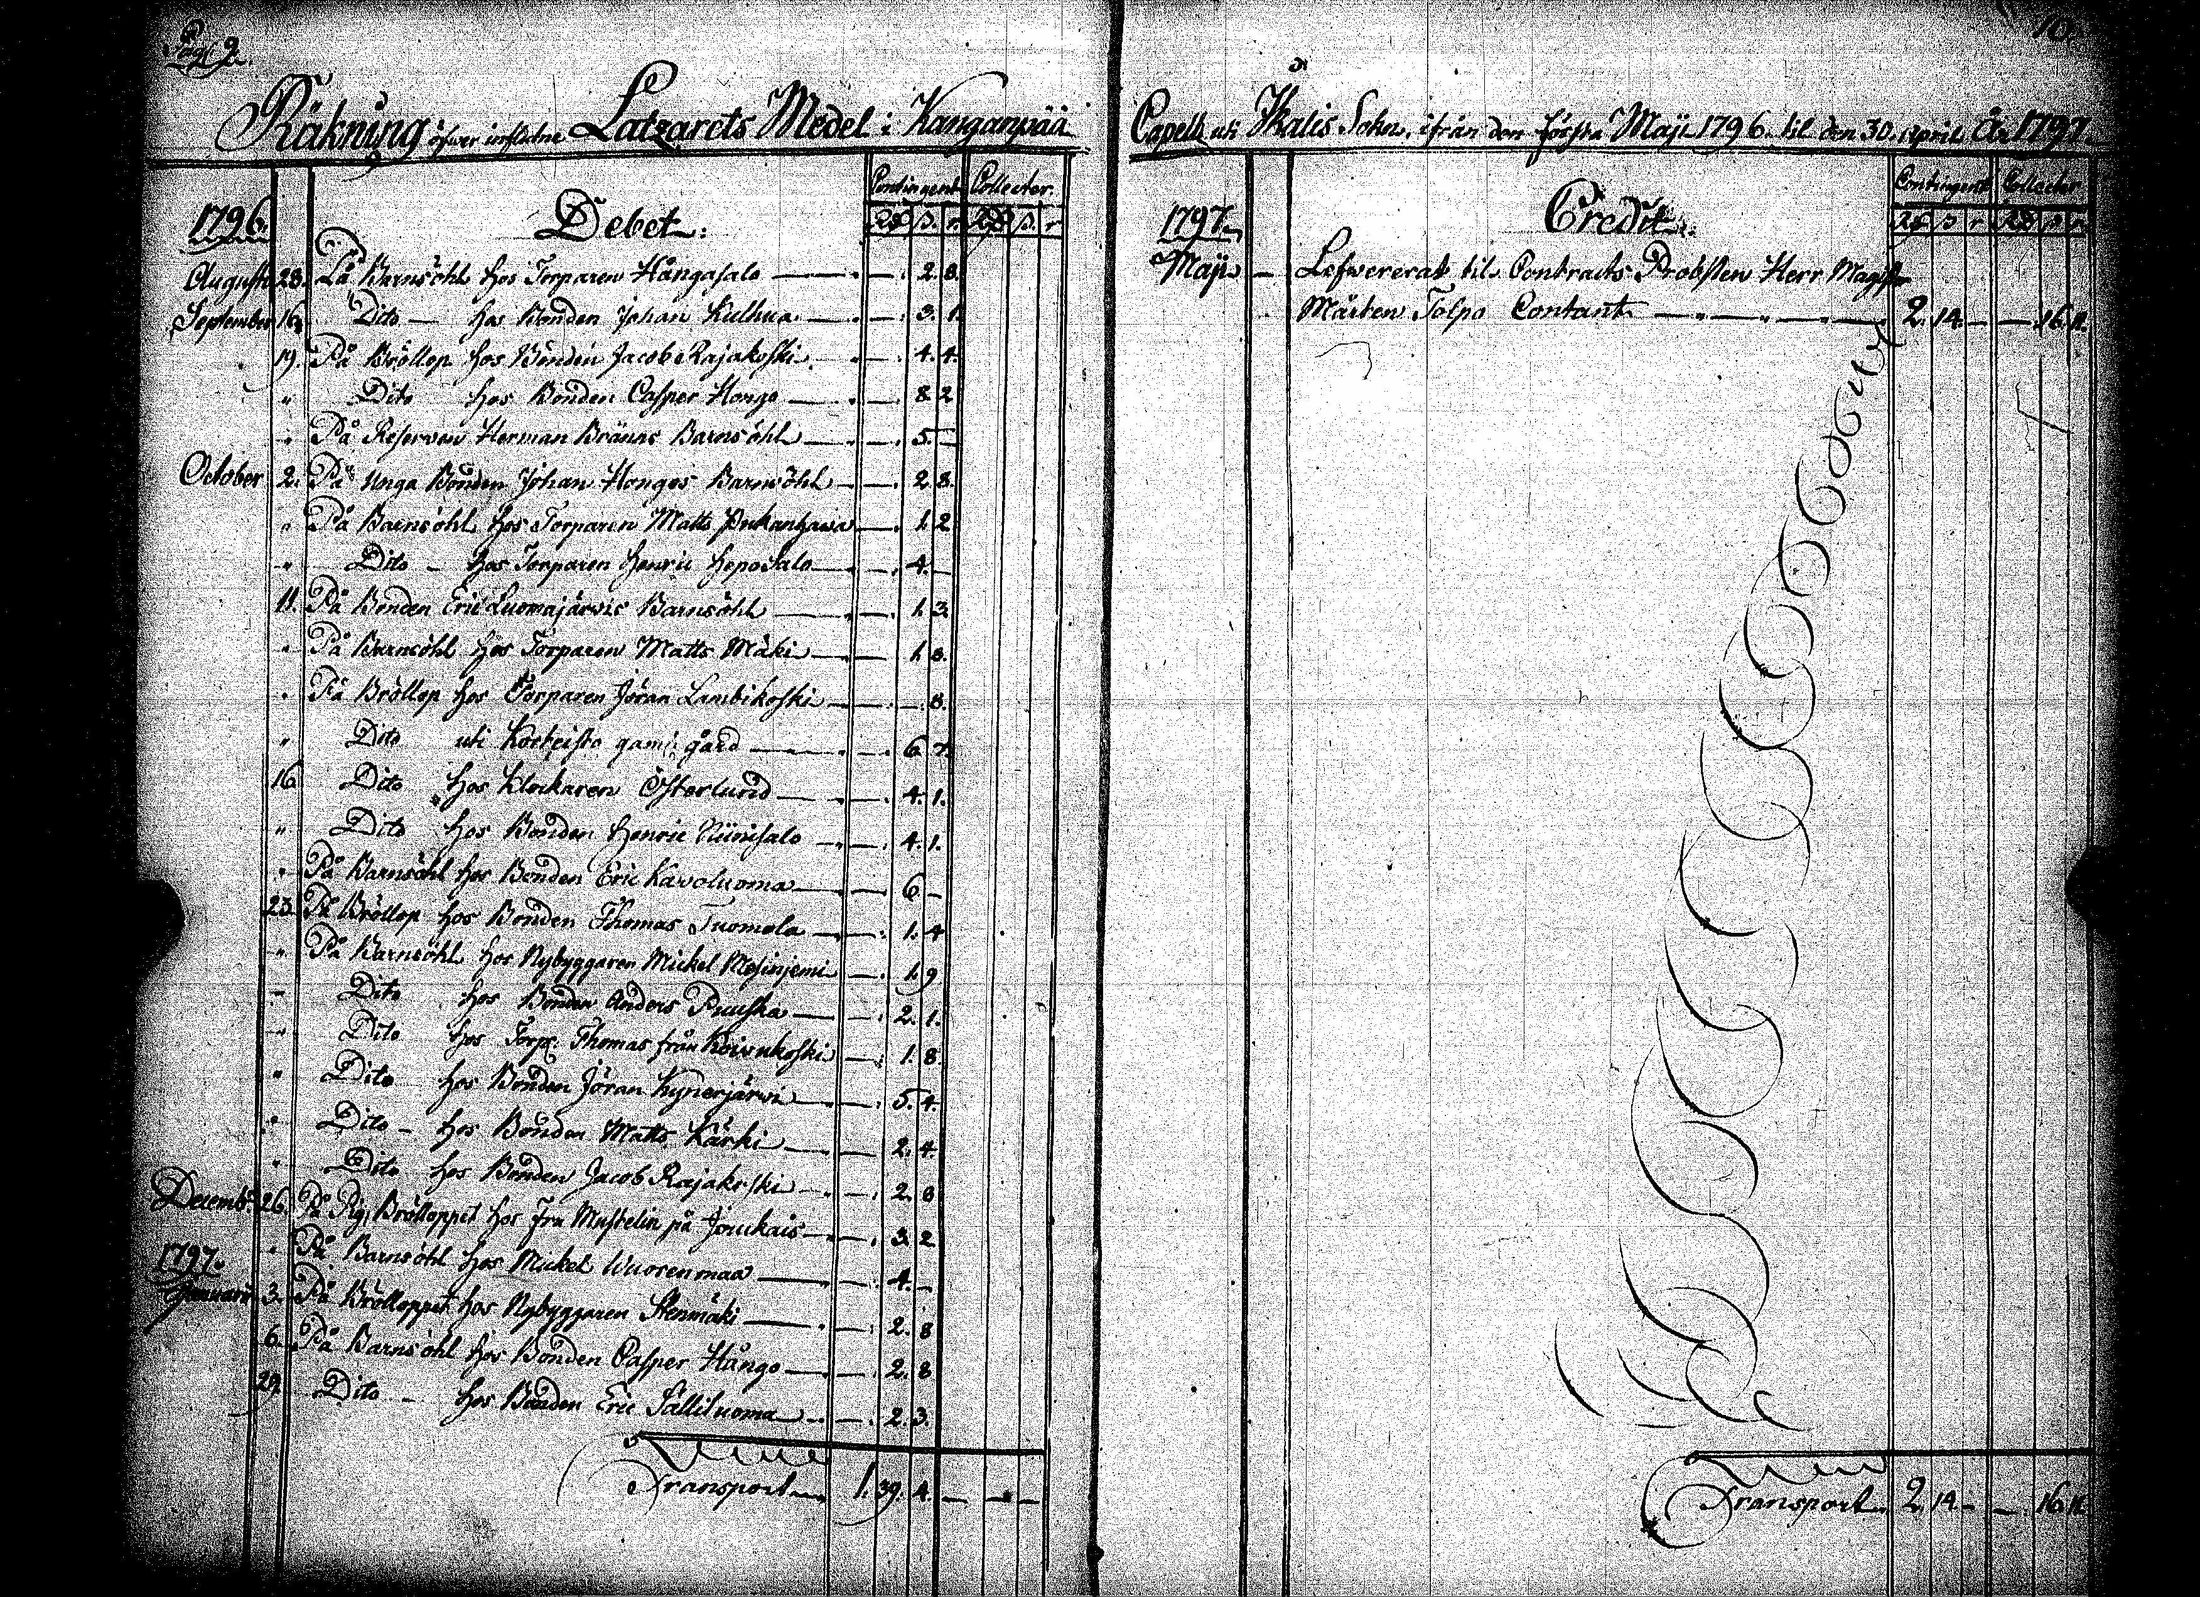 Pag. 2.
Räkning öfwer influtne Latzarets Medel i Kanganpää
Contingent Collecter.
Rd ß. r. Rd ß. r
1796. Debet.
Augusti 28. På Barnsöhl hos Torparen Hångasalo — 2. 8.
September 18. Dito — hos Bonden Johan Kulhua — 3. 1.
19. På Bröllop hos Bonden Jacob Rajakoski — 4. 4.
" Dito hos Bonden Casper Hongo — 8 2
" På Reserven Herman Bränns Barnsöhl — 5. —
October 2. På Unga Bonden Johan Hongos Barnsöhl — 2 8.
" På Barnsöhl hos Torparen Matts — 1. 2
" Dito — hos Torparen Henric Heposalo — 4. —
11. På Bonden Eric Luomajärwis Barnsöhl — 1. 3.
" På Barnsöhl hos Torparen Matts Mäki — 1. 8.
" På Bröllop hos Torparen Jöran Lambikoski — 8.
" Dito uti gård — 6. 7.
16 Dito hos Klockaren Österlund — 4. 1.
" Dito hos Bonden Henric Niinisalo — 4. 1.
" På Barnsöhl hos Bonden Eric Karoluoma — 6 —
23. På Bröllop hos Bonden Thomas Tuomola — 1. 4
" På Barnsöhl hos Nybyggaren Mickel — 1. 9
" Dito hos Bonden Anders Ruuska — 2. 1.
" Dito hos Torp. Thomas från Koivukoski — 1. 8
" Dito hos Bonden Jöran Kynerjärwi — 5. 4.
" Dito — hos Bonden Matts Kärki — 2. 4
" Dito hos Bonden Jacob Rajakoski — 2. 8
Decemb. 26. På Brölloppet hos Fru Mustelin på — 3. 2
" På Barnsöhl hos Mickel Wuorenmaa — 4. —
1797.
Januari 3. På Brölloppet hos Nybyggaren Stenmäki — 2. 8
6. På Barnsöhl hos Bonden Casper Hångo — 2. 8
29. Dito — hos Bonden Eric Sälliluoma — 2. 3.
Transport — 1. 39. 4. — — —
10.
Capell uti Ikalis Sokn, ifrån den första Maji 1796. til den 30. April År 1797.
Contingent Collecter
Rd ß r Rd ß r.
1797. Credit.
Maji — Lefwererat til Contracts Probsten Herr Magister
Mårten Tolpo Contant — 2. 14. — — 16. 11.
Transport. 2. 14. — — 16. 11.